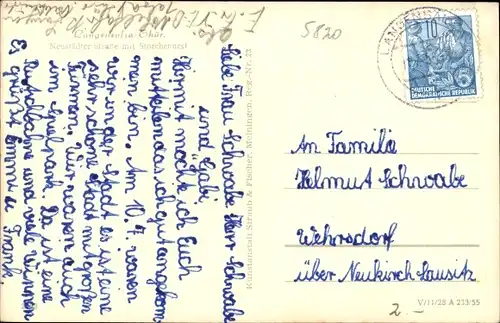 5820
Langensalza Thür.
Neustädter Straße mit Storchennest
Liebe Frau Schwabe Herr Schwabe
und Gabi
Hiermit möchte ich Euch
mitteilen das ich gut angekom
men bin. Am 10.7. waren
wir in der Stadt es ist eine
sehr schöne Stadt mit großen
Türmen. Wir waren auch
im Spielpark. Da ist eine
Rutschbahne und viele Wippen
Es grüßt Emmi u
Frank.
Kunstanstalt Straub & Fischer, Meiningen, Reg.-Nr. 23
LANGENSALZA
10
DEUTSCHE
DEMOKRATISCHE REPUBLIK
An Familie
Helmut Schwabe
Wehrsdorf
über Neukirch-Lausitz
V/11/28 A 213/55
2.-